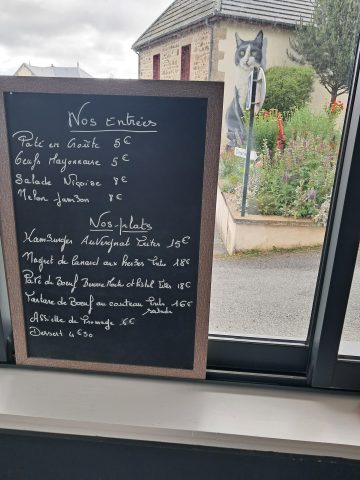 Nos Entrées
Paté en Croûte 5€
Oeufs Mayonnaise 5€
Salade Niçoise 8€
Melon Jambon 8€
Nos plats
Hamburger Auvergnat frites 15€
Magret de Canard aux herbes frites 18€
de Boeuf frites 18€
Tartare de Boeuf au couteau frites 16€
salade
Assiette de fromage 6€
Dessert 4€50